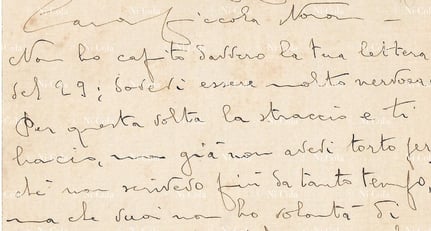 Cara piccola Nonor –
Non ho capito davvero la tua lettera
del 29; dovevi essere molto nervosa
Per questa volta la straccio e ti
bacio, ma già non avevi torto per
chè non scrivevo più da tanto tempo,
ma che vuoi non ho volontà di